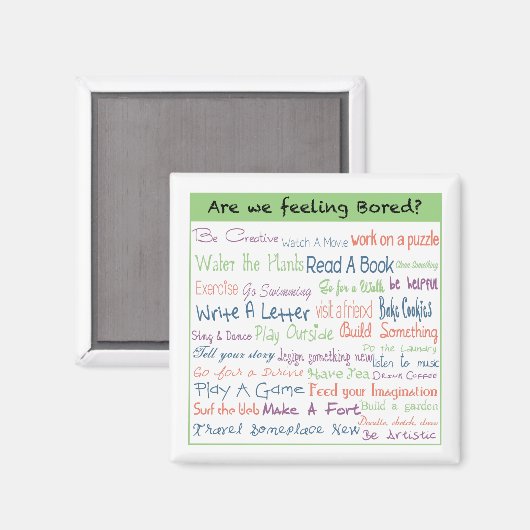 Are we feeling Bored?
Be Creative Watch A Movie work on a puzzle
Water the Plants Read A Book Clean Something
Exercise Go Swimming Go for a Walk be helpful
Write A Letter visit a friend Bake Cookies
Sing & Dance Play Outside Build Something
Tell your story design something new Do The Laundry
listen to music
Go for a Drive Have Tea Drink Coffee
Play A Game Feed your Imagination
Surf the Web Make A Fort Build a garden
Doodle, sketch, draw
Travel Someplace New Be Artistic